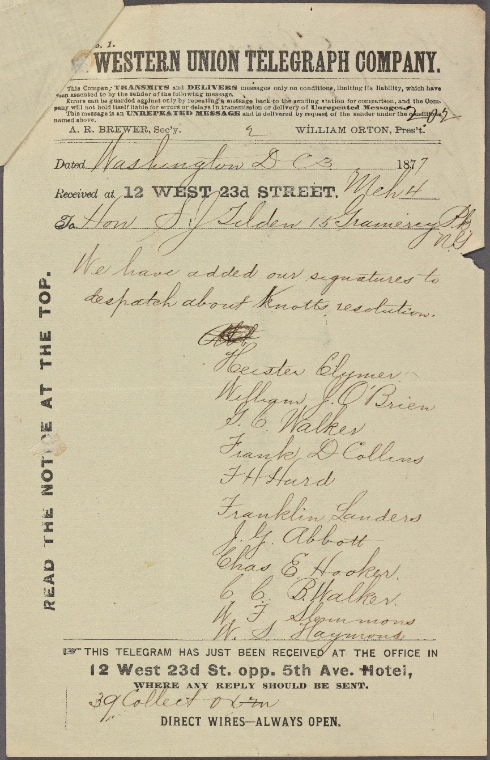 o. 1.
WESTERN UNION TELEGRAPH COMPANY.
This Company TRANSMITS and DELIVERS messages only on conditions, limiting its liability, which have
been assented to by the sender of the following message.
Errors can be guarded against only by repeating a message back to the sending station for comparison, and the Com-
pany will not hold itself liable for errors or delays in transmission or delivery of Unrepeated Messages.
This message is an UNREPEATED MESSAGE and is delivered by request of the sender under the
named above.
A. R. BREWER, Sec'y. 2 WILLIAM ORTON, Pres't.
Dated Washington D C 3 1877
Received at 12 WEST 23d STREET. Mch 4
To Hon S. J Tilden 15 Gramercy Pk
N.Y
We have added our signatures to
despatch about Knotts resolution.
Heister Clymer
William J. O'Brien
G. C. Walker
Frank D Collins
F H Hurd
Franklin Landers
J. G. Abbott
Chas E Hooker.
C. C. B. Walker.
W F Slemmons
W. S Haymond
THIS TELEGRAM HAS JUST BEEN RECEIVED AT THE OFFICE IN
12 West 23d St. opp. 5th Ave. Hotel,
WHERE ANY REPLY SHOULD BE SENT.
39 Collect
DIRECT WIRES—ALWAYS OPEN.
READ THE NOTICE AT THE TOP.